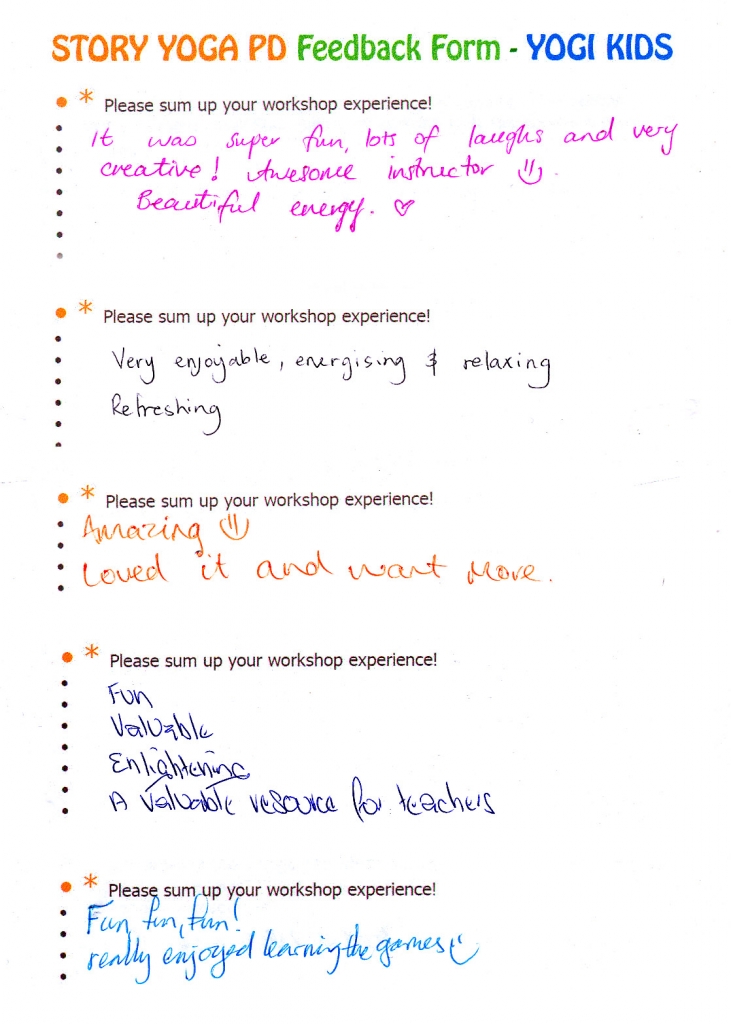 STORY YOGA PD Feedback Form - YOGI KIDS
* Please sum up your workshop experience!
It was super fun, lots of laughs and very
creative! Awesome instructor
Beautiful energy. ♡
* Please sum up your workshop experience!
Very enjoyable, energising & relaxing
Refreshing
* Please sum up your workshop experience!
Amazing
Loved it and want more.
* Please sum up your workshop experience!
Fun
Valuable
Enlightening
A valuable resource for teachers
* Please sum up your workshop experience!
Fun, fun, fun!
really enjoyed learning the games